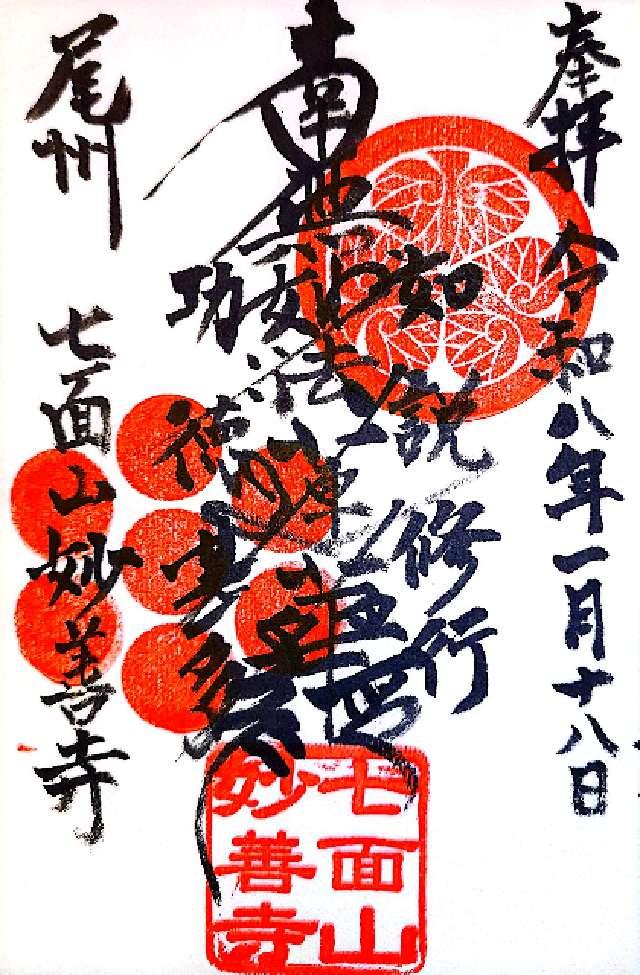 奉拝 令和八年一月十八日
南無妙法蓮華経
如説修行
功徳
尾州
七面山妙善寺
七面山
妙善寺